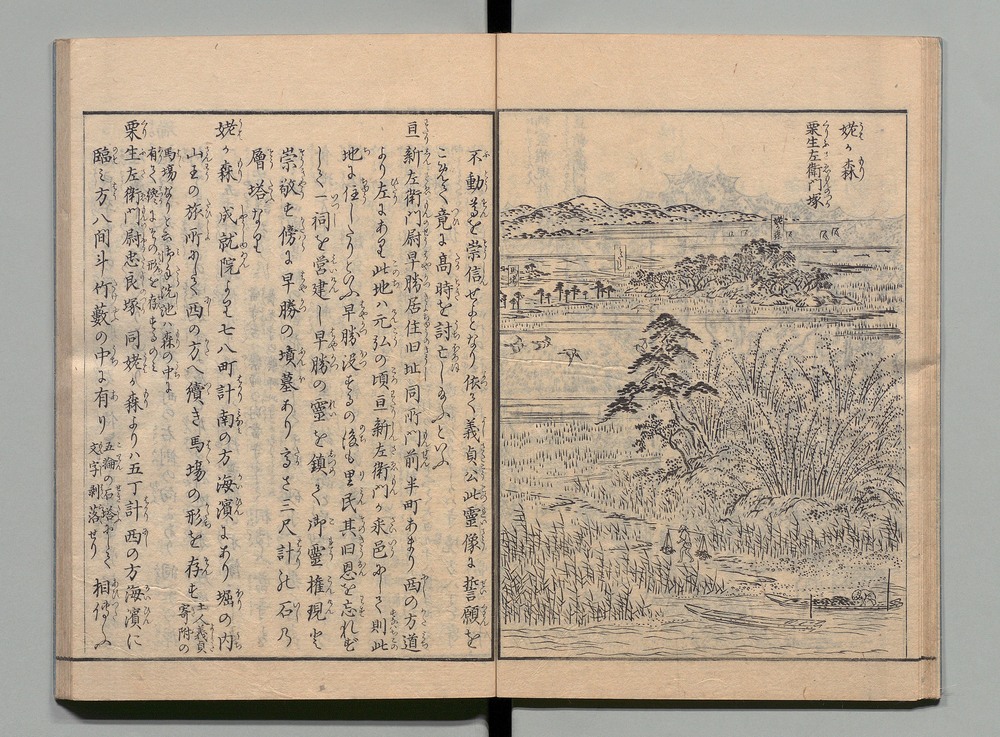 姥が森
粟生左衛門塚
姥が森
不動尊を崇信せしとなり依て義貞公此霊像に誓願を
こめて竟に高時を討亡し玉ふといふ
亘新左衛門尉早勝居住旧址 同所門前半町あまり西の方道
より左にあり此地ハ元弘の頃亘新左衛門が采邑にして則此
地に住したりといふ早勝没するの後も里民其旧恩を忘れず
して一祠を営建し早勝の霊を鎮めて御霊権現と
崇敬せり傍に早勝の墳墓あり高さ三尺計の石の
層塔なり
姥が森 成就院より七八町計南の方海濱にあり堀の内
山王の旅所にして西の方へ續き馬場の形を存せり 土人義貞寄附の
馬場なりと云
粟生左衛門尉忠良塚 同姥が森よりハ五丁計西の方海濱に
臨む方八間斗竹藪の中に有り 五輪の石塔にして
文字剥落せり 相傳ふ